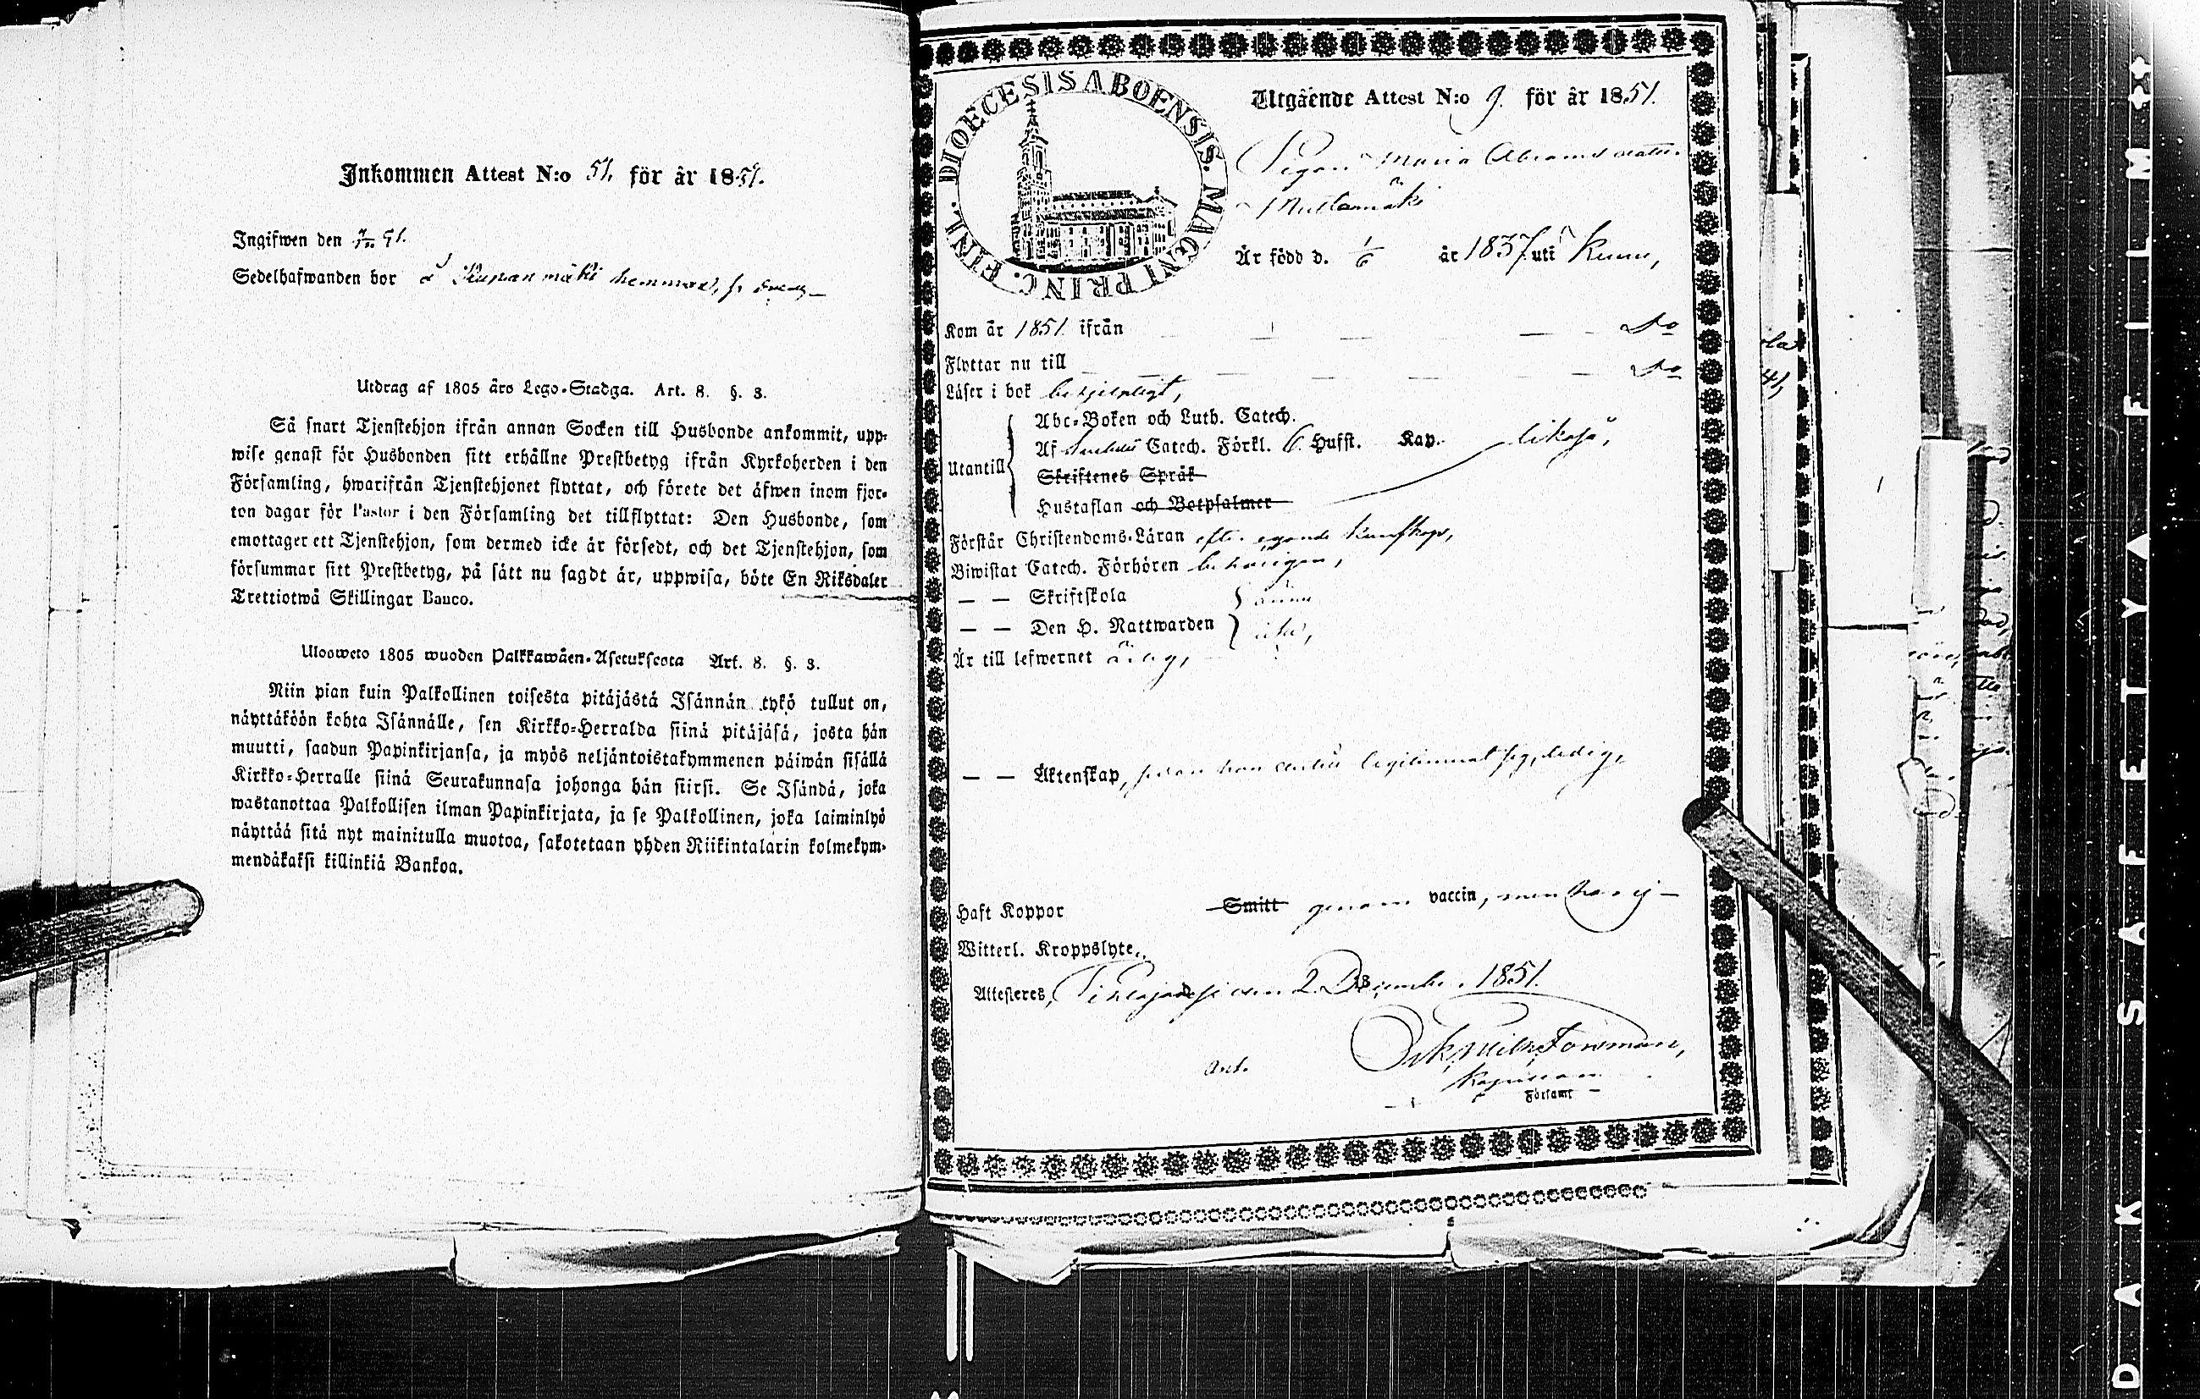 Inkommen Attest N:o 51. för år 1851.
Ingifwen den
Sedelhafwanden bor å
Utdrag af 1805 års Lego-Stadga. Art. 8. §. 3.
Så snart Tjenstehjon ifrån annan Socken till Husbonde ankommit, upp-
wise genast för Husbonden sitt erhållne Prestbetyg ifrån Kyrkoherden i den
Församling, hwarifrån Tjenstehjonet flyttat, och förete det äfwen inom fjor-
ton dagar för Pastor i den Församling det tillflyttat: Den Husbonde, som
emottager ett Tjenstehjon, som dermed icke är försedt, och det Tjenstehjon, som
försummar sitt Prestbetyg, på sätt nu sagdt är, uppwisa, böte En Riksdaler
Trettiotwå Skillingar Banco.
Ulosweto 1805 wuoden Palkkawäen-Asetuksesta Art. 8. §. 3.
Niin pian kuin Palkollinen toisesta pitäjästä Isännän tykö tullut on,
näyttäköön kohta Isännälle, sen Kirkko-Herralda siinä pitäjäsä, josta hän
muutti, saadun Papinkirjansa, ja myös neljäntoistakymmenen päiwän sisällä
Kirkko-Herralle siinä Seurakunnasa johonga hän siirsi. Se Isändä, joka
wastanottaa Palkollisen ilman Papinkirjata, ja se Palkollinen, joka laiminlyö
näyttää sitä nyt mainitulla muotoa, sakotetaan yhden Riikintalarin kolmekym-
mendäkaksi killinkiä Bankoa.
DIOECESIS ABOENSIS. MAGNI PRINC. FINL.
Utgående Attest N:o 9. för år 1851.
Pigan Maria Abramsdotter
Är född d. 1/6 år 1837. uti
Kom år 1851 ifrån Do
Flyttar nu till Do
Läser i bok behjelpligt,
Abc-Boken och Luth. Catech.
Utantill Af Catech. Förkl. 6. Hufst. Kap. likaså,
Skriftenes Språk
Hustaflan och Botpsalmer
Förstår Christendoms-Läran efter egande kunskap,
Biwistat Catech. Förhören behörigen,
— — Skriftskola ännu
— — Den H. Nattwarden icke,
Är till lefwernet ärlig,
— — Äktenskap, ledig,
Haft Koppor Smitt genom vaccin, men
Witterl. Kroppslyte,
Attesteres, den 2 December 1851.
Forsman,
Kapellan
Församl
DAK SAFETY FILM